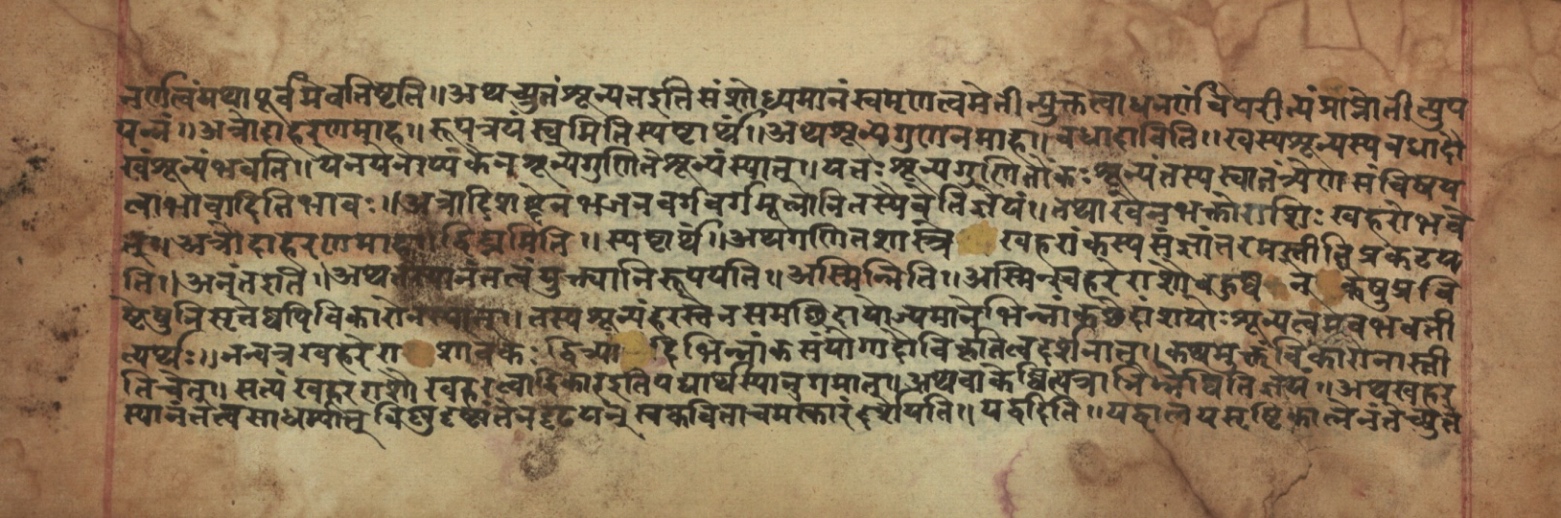 नर्णत्वंमथापूर्वमेवतिष्ठति॥अथच्युतंशून्यतइतिसंशोध्यमानंस्वमृणत्वमेती त्युक्तत्वाधनर्णविपरीत्यंप्राप्नोती त्युप
पन्नं॥अत्रोदाहरणमाह॥रूपत्रयंस्वमितिस्पष्टार्थं॥अथशून्यगुणनमाह॥वधादाविति॥खस्यशून्यस्यवधादौ
खंशून्यंभवति॥येनयेनाप्यंकेनशून्येगुणितेशून्यंस्यात्॥यतःशून्यगुणितोंकःशून्यंतस्यस्वातंत्र्येणसंविषय
त्वाभावादितिभावः॥अत्रादिशब्देनभजनवर्गवर्गमूलानितस्यैवेतिज्ञेयं॥तथाखेनभक्तोराशिः खहरोभवे
त्॥अत्रोदाहरणमाह द्विघ्नमिति॥स्पष्टार्थं॥अथगणितशास्त्रे खहरांकस्यसंज्ञांतरमस्तीतिप्रकटय
ति॥अनंतइति॥अथतस्यानंतत्वंयुक्त्यानिरूपयति॥अस्मिन्निति॥अस्मिन्खहरराशौबहुष्व न् केषुप्रवि
ष्टेषुनिसृतेष्वपिविकारोनस्यात्॥तस्यशून्यंहरस्तेनसमच्छिदायोज्यमानेभिन्नांकछेदांशयोःशून्यत्वमेवभवती
त्यर्थः॥नन्वत्रखहरेरा शावेकः द्वित्र्या दिभिन्नांकसंयोगादौविकृतित्वदर्शनात्॥कथमुक्तंविकारोनास्ती
तिचेत्॥सत्यंखहरराशौखहरत्वादिकारइतिपद्यार्थस्यानुगमात्॥अथवाकेष्वित्यत्राभिन्नेष्वितिज्ञेयं॥अथखहर
स्यानंतत्वसाधर्म्यात् विष्णुदृष्टांतेनदृढयन् स्वकविताचमत्कारंदर्शयति॥यद्वदिति॥यद्वाल्लयसृष्टिकालेनंतेच्युते